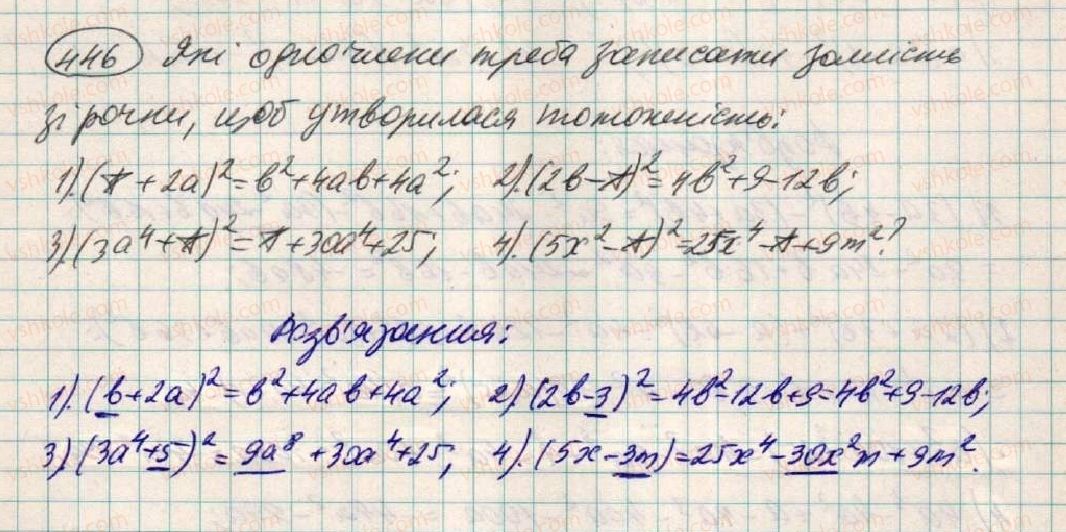 446 Які одночлени треба записати замість
зірочки, щоб утворилася тотожність:
1). (* + 2a)² = b² + 4ab + 4a²; 2). (2b - *)² = 4b² + 9 - 12b;
3) (3a⁴ + *)² = * + 30a⁴ + 25; 4). (5x² - *)² = 25x⁴ - * + 9m²?
Розв'язання:
1). (b + 2a)² = b² + 4ab + 4a²; 2) (2b - 3)² = 4b² - 12b + 9 = 4b² + 9 - 12b;
3) (3a⁴ + 5)² = 9a⁸ + 30a⁴ + 25; 4). (5x - 3m) = 25x⁴ - 30x²m + 9m².